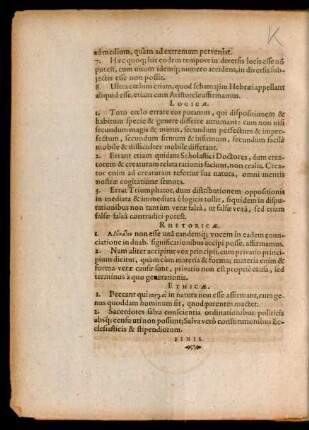 K
ad medium, quàm ad extremum perveniat.
7. Hæc quoq; lux eodem tempore in diversis locis esse nõ
potest, cum unum idemq; numero accidens, in diversis sub-
jectis esse non possit.
8. Ultra cœlum etiam, quod schamajim Hebræi appellant
aliquid esse, etiam cum Aristotele affirmamus.
LOGICÆ.
1. Toto cœlo errare eos putamus, qui dispositionem &
habitum specie & genere differre autumant cum non nisi
secundum magis & minus, secundum perfectum & imper-
fectum, secundum firmum & infirmum, secundum facilè
mobile & difficulter mobile differant.
2. Errant etiam quidam Scholastici Doctores, dum crea-
torem & creaturam relata rationis faciunt, non realia. Crea-
tor enim ad creaturam refertur sua natura, omni mentis
nostræ cogitatione semota.
3. Errat Triumphator, dum distributionem oppositionis
in mediata & immediata è logicis tollit, siquidem in dispu-
rationibus non tantùm vera falsis, ut falsè veris, sed etiam
falsæ falsis contradici potest.
RHETORICÆ.
1. non esse unã eandemq; vocem in eadem enun-
ciatione in duab. significationibus accipi posse, affirmamus.
2. Nam aliter accipitur vox principii, cum privatio prin-
cipium dicitur, quàm cum materia & forma; materia enim &
forma veræ causæ sunt, privatio non est propriè causa, sed
terminus à quo generationis.
ETHICÆ.
1. Peccant qui in natura non esse affirmant, cum ge-
nus quoddam hominum sit, quod parentes mactet.
2. Sacerdotes salva conscientia ordinationibus politicis
absq; censu uti non possunt; Salva verò constitutionibus Ec-
clesiasticis & stipendiorum.
FINIS.